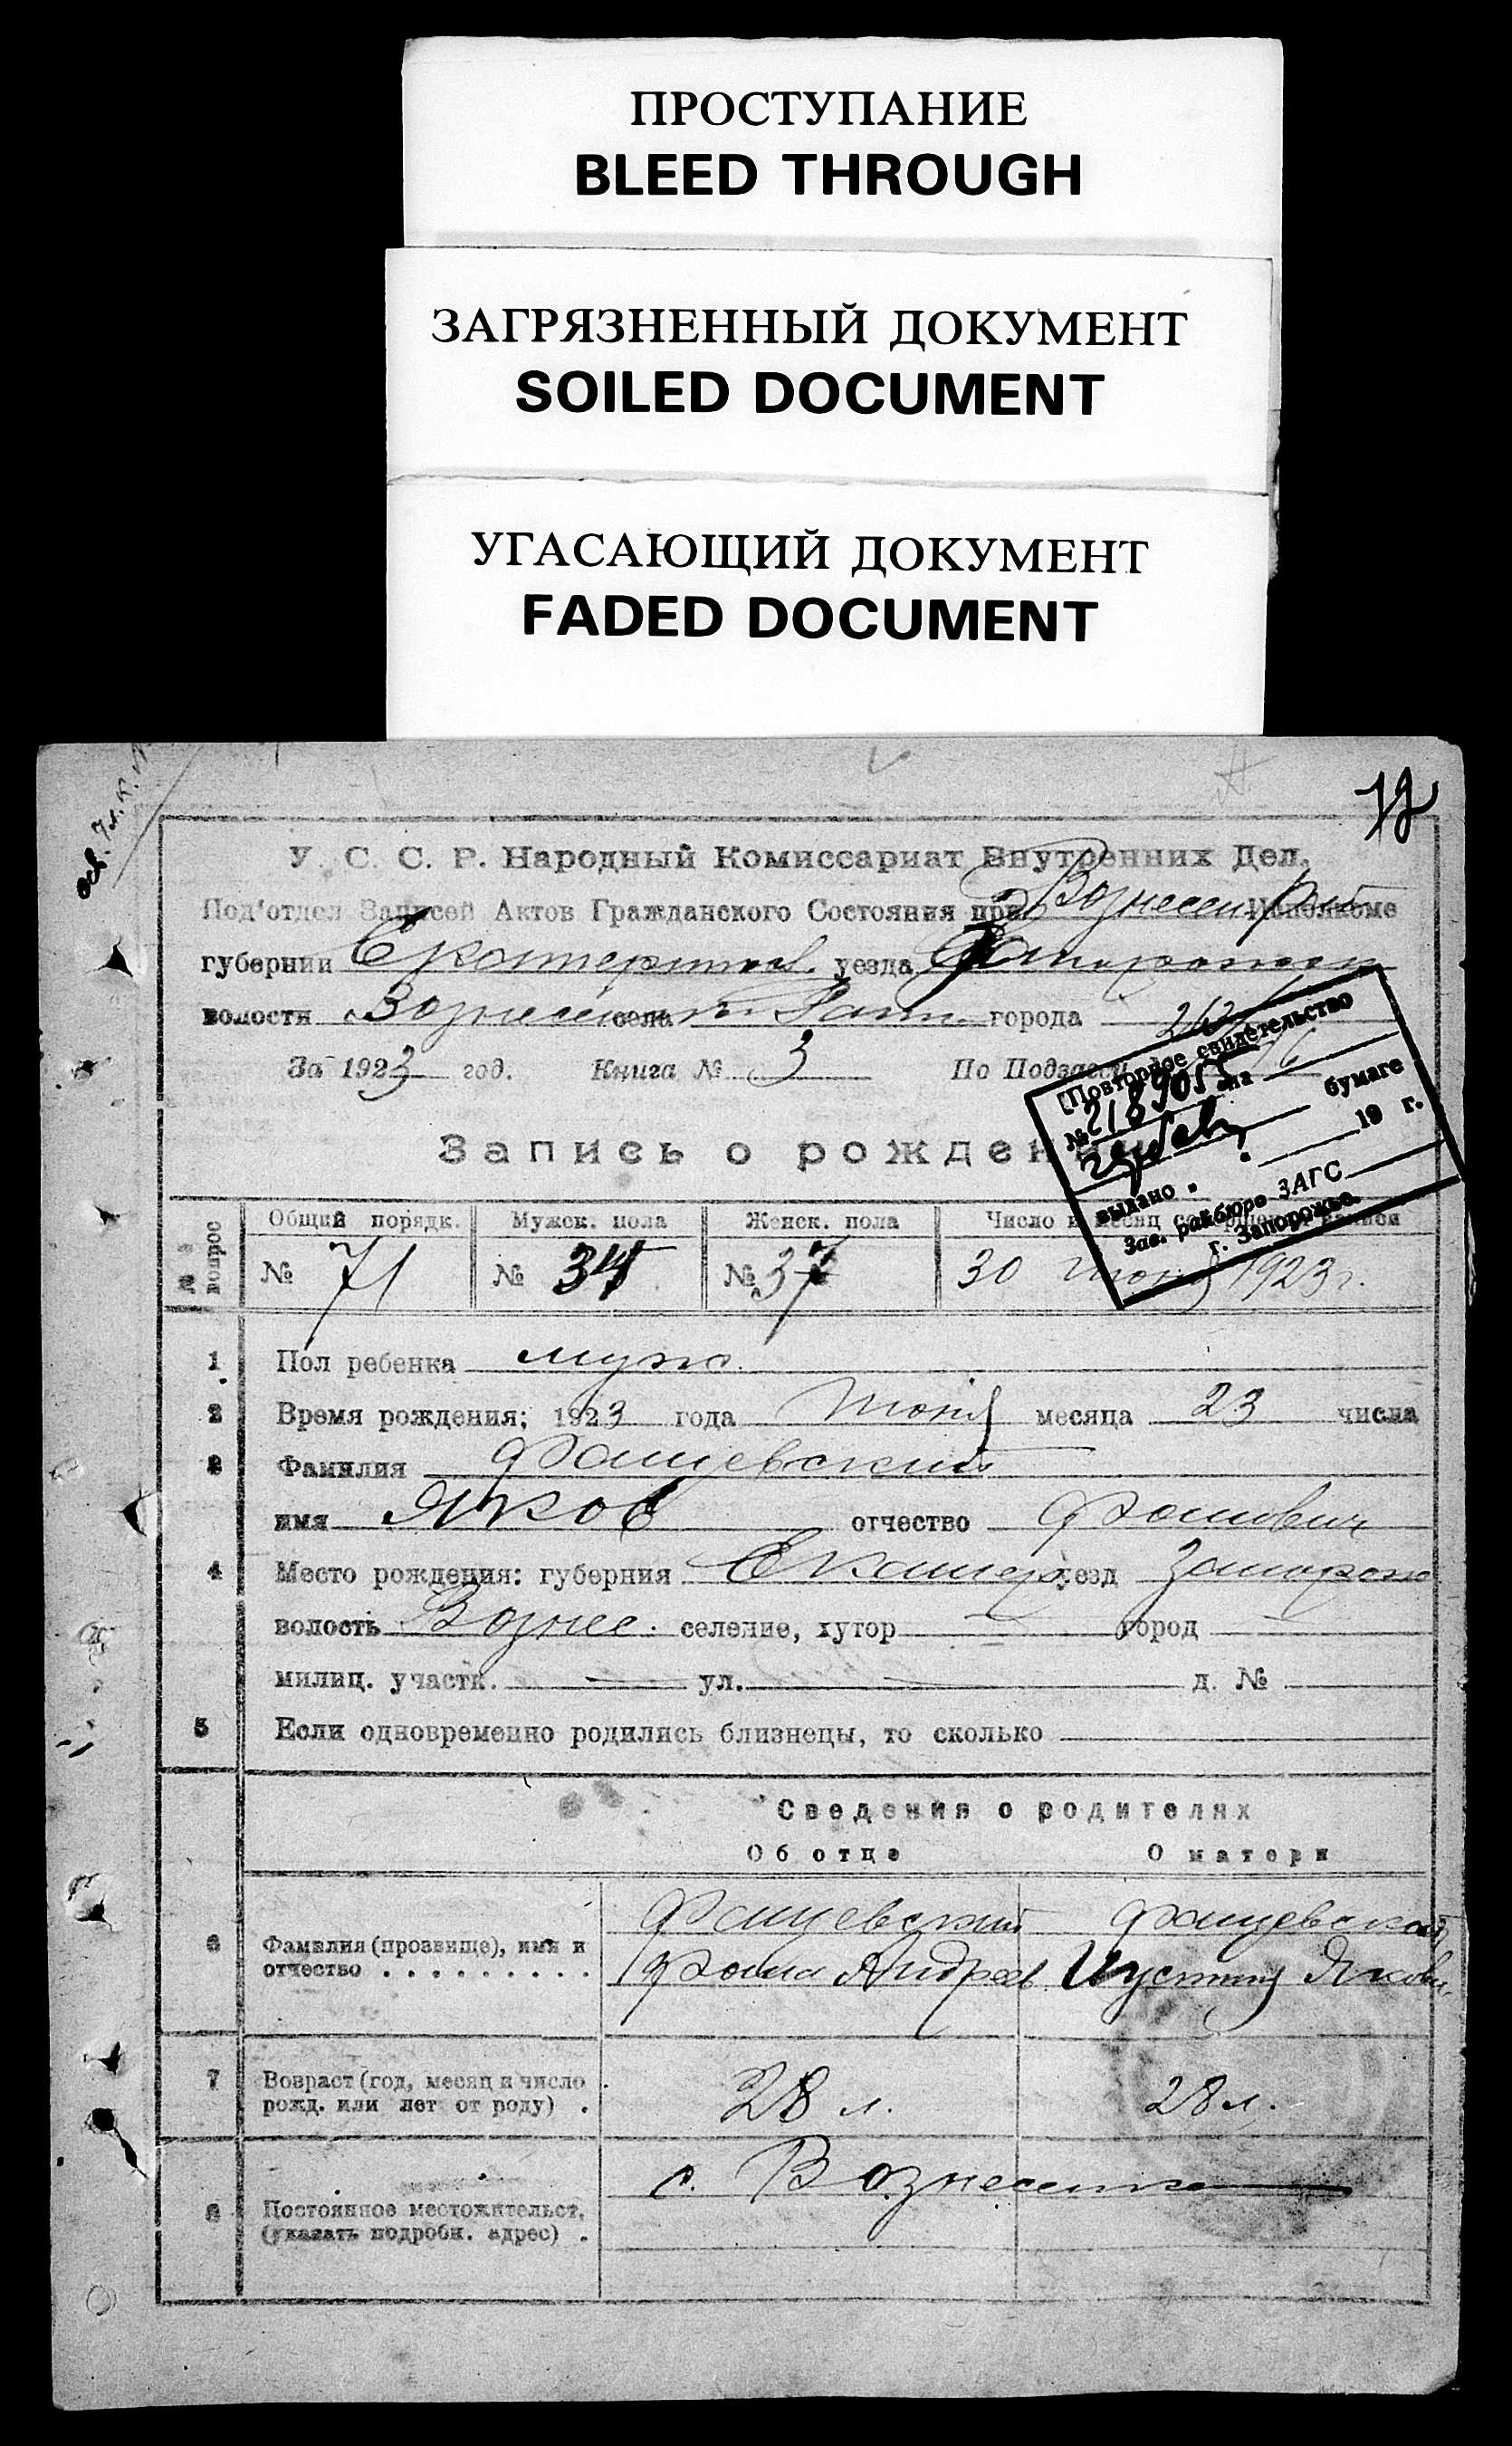 ПРОСТУПАНИЕ
BLEED THROUGH
ЗАГРЯЗНЕННЫЙ ДОКУМЕНТ
SOILED DOCUMENT
УГАСАЮЩИЙ ДОКУМЕНТ
FADED DOCUMENT
У. С. С. Р. Народный Комиссариат Внутренних Дел.
Под'отдел Записей Актов Гражданского Состояния при Вознесен. Исполкоме
губернии Екатериносл. уезда
волости Вознесенск села города
За 1923 год. Книга № 3 По Подзаг
[Повторное свидетельство
№ 2189055 на
бумаге
выдано 19 г.
Зав. райбюро ЗАГС
г. Запорожье.
Запись о рожден
№ вопрос
Общий порядк. Мужск. пола Женск. пола Число и месяц
№ 71 № 34 № 37 30 июня 1923 г.
1 Пол ребенка мужс.
2 Время рождения; 1923 года Июня месяца 23 числа
3 Фамилия Фащевский
имя Яков отчество Фомович
4 Место рождения: губерния Екатер. уезд Запорож
волость Вознес. селение, хутор город
милиц. участк. ул. д. №
5 Если одновременно родились близнецы, то сколько
Сведения о родителях
Об отце О матери
6 Фамилия (прозвище), имя и отчество Фащевский Фащевская
Фома Андреев Иустинья Яковл.
7 Возраст (год, месяц и число рожд. или лет от роду) 28 л. 28 л.
8 Постоянное местожительст. (указать подробн. адрес) с. Вознесенка